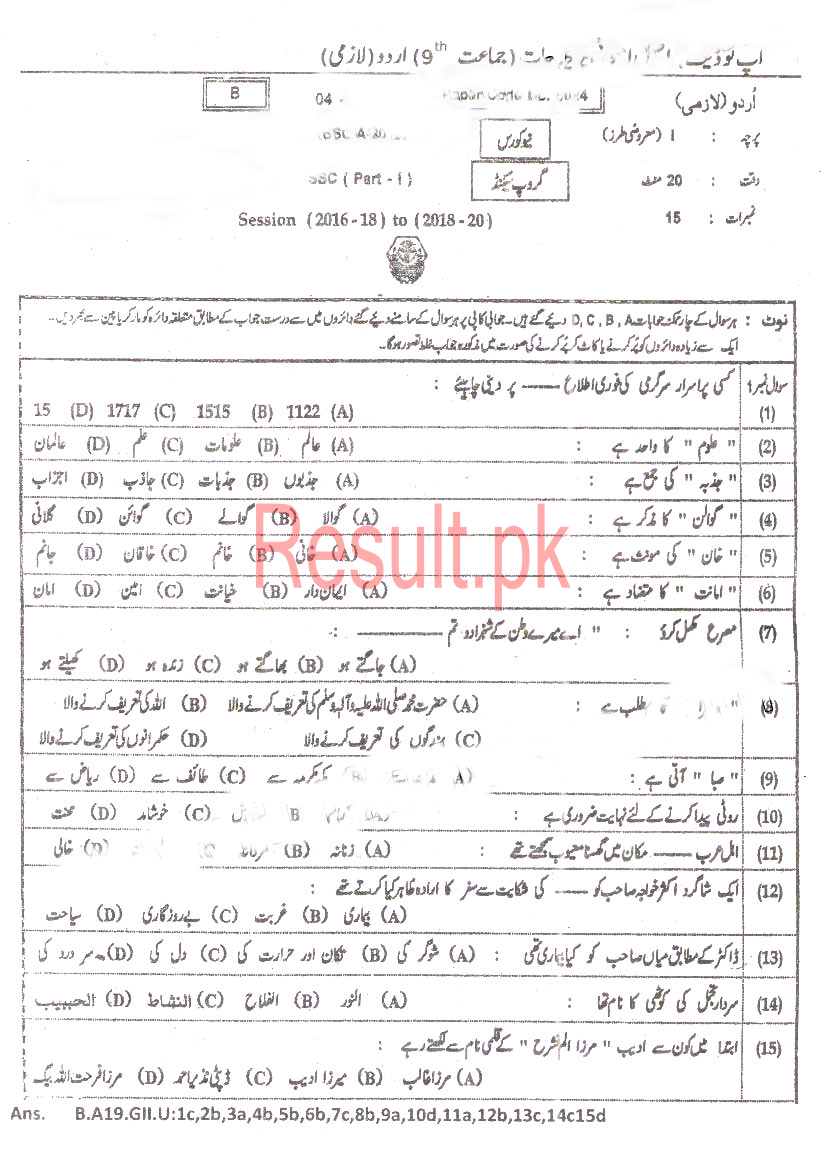 اپ ٹو ڈیٹ (جماعت 9th) اردو (لازمی)
اُردو (لازمی) 04 B
پرچہ : I (معروضی طرز) نیو کورس
وقت : 20 منٹ گروپ سیکنڈ SSC ( Part - I )
نمبرات : 15 Session (2016-18) to (2018-20)
نوٹ : ہر سوال کے چار ممکنہ جوابات D, C, B, A دیئے گئے ہیں۔ جوابی کاپی پر ہر سوال کے سامنے دیئے گئے دائروں میں سے درست جواب کے مطابق متعلقہ دائرہ کو مارکر یا پین سے بھر دیں۔
ایک سے زیادہ دائروں کو پُر کرنے یا کاٹ کر پُر کرنے کی صورت میں مذکورہ جواب غلط تصور ہوگا۔
سوال نمبر 1 کسی پراسرار سرگرمی کی فوری اطلاع ——— پر دینی چاہیئے :
(1) (A) 1122 (B) 1515 (C) 1717 (D) 15
(2) " علوم " کا واحد ہے : (A) عالم (B) علومات (C) علم (D) عالمان
(3) " جذبہ " کی جمع ہے : (A) جذبوں (B) جذبات (C) جاذب (D) اجزاب
(4) " گوالن " کا مذکر ہے : (A) گوالا (B) گوالے (C) گوائن (D) گلانی
(5) " خان " کی مونث ہے : (A) خانی (B) خانم (C) خاقان (D) جانم
(6) " امانت " کا متضاد ہے : (A) ایمان دار (B) خیانت (C) امین (D) امان
(7) مصرع مکمل کرو : " اے میرے وطن کے شہزادو تم ———
(A) جاگتے ہو (B) بھاگتے ہو (C) زندہ ہو (D) کھیلتے ہو
(8) " کا مطلب ہے : (A) حضرت محمد صلی اللہ علیہ وآلہ وسلم کی تعریف کرنے والا (B) اللہ کی تعریف کرنے والا
(C) بزرگوں کی تعریف کرنے والا (D) حکمرانوں کی تعریف کرنے والا
(9) " صبا " آتی ہے : (A) (B) مکہ مکرمہ سے (C) طائف سے (D) ریاض سے
(10) روٹی پیدا کرنے کے لئے نہایت ضروری ہے : B (C) خوشامد (D) محنت
(11) اہل عرب ——— مکان میں گھسنا معیوب سمجھتے تھے : (A) زنانہ (B) مردانہ (D) خالی
(12) ایک شاگرد اکثر خواجہ صاحب کو ——— کی شکایت سے سفر کا ارادہ ظاہر کیا کرتے تھے :
(A) بیماری (B) غربت (C) بے روزگاری (D) سیاحت
(13) ڈاکٹر کے مطابق میاں صاحب کو کیا بیماری تھی : (A) شوگر کی (B) تکان اور حرارت کی (C) دل کی (D) سر درد کی
(14) سردار تجمل کی کوٹھی کا نام تھا : (A) النور (B) الفلاح (C) النشاط (D) الحبیب
(15) ابتدا میں کون سے ادیب " مرزا الم نشرح " کے قلمی نام سے لکھتے رہے :
(A) مرزا غالب (B) میرزا ادیب (C) ڈپٹی نذیر احمد (D) مرزا فرحت اللہ بیگ
Ans. B.A19.GII.U:1c,2b,3a,4b,5b,6b,7c,8b,9a,10d,11a,12b,13c,14c15d
Result.pk